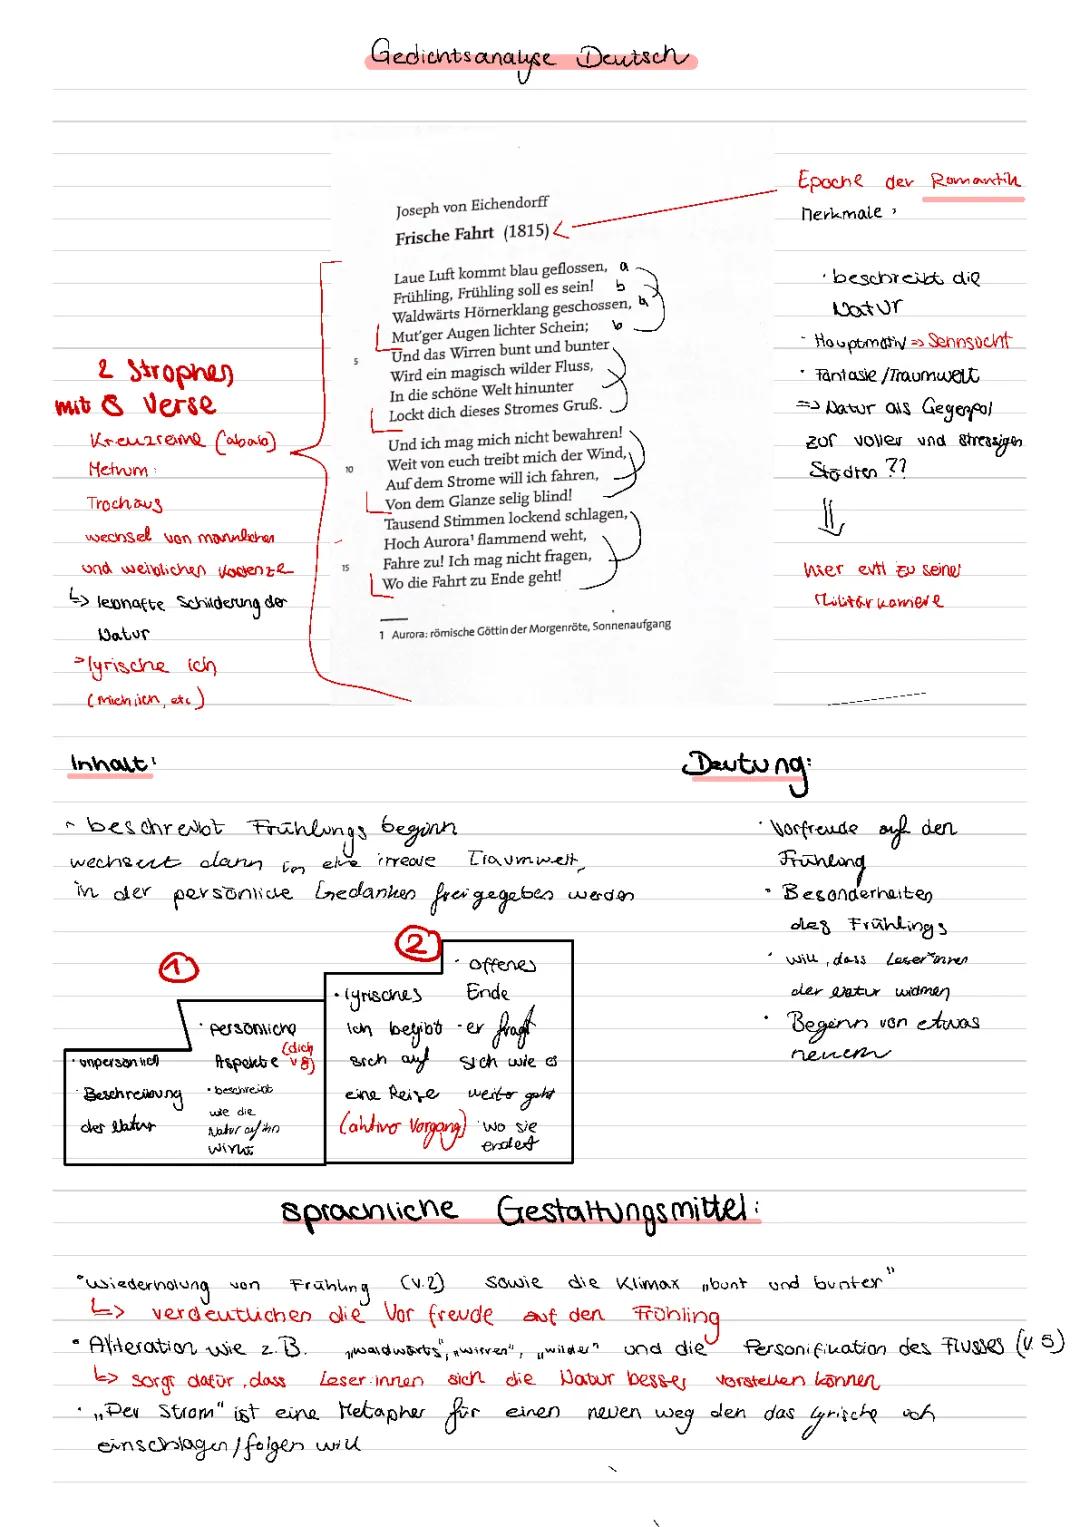 Gedichtsanalyse Deutsch
Joseph von Eichendorff
Frische Fahrt (1815)
Laue Luft kommt blau geflossen, a
Frühling, Frühling soll es sein! b
Waldwärts Hörnerklang geschossen, a
Mut'ger Augen lichter Schein; b
5 Und das Wirren bunt und bunter
Wird ein magisch wilder Fluss,
In die schöne Welt hinunter
Lockt dich dieses Stromes Gruß.
Und ich mag mich nicht bewahren!
10 Weit von euch treibt mich der Wind,
Auf dem Strome will ich fahren,
Von dem Glanze selig blind!
Tausend Stimmen lockend schlagen,
Hoch Aurora¹ flammend weht,
15 Fahre zu! Ich mag nicht fragen,
Wo die Fahrt zu Ende geht!
1 Aurora: römische Göttin der Morgenröte, Sonnenaufgang
2 Strophen
mit 8 Verse
Kreuzreime (abab)
Metrum:
Trochäus
wechsel von männlichen
und weiblichen Kadenze
↳ lebhafte Schilderung der
Natur
→ lyrische ich
(mich, ich, etc.)
Epoche der Romantik
Merkmale:
· beschreibt die
Natur
· Hauptmotiv => Sehnsucht
· Fantasie/Traumwelt
=> Natur als Gegenpol
zur voller und stressigen
Städten ??
hier evtl zu seiner
Militärkarriere
Inhalt:
- beschreibt Frühlings beginn
wechselt dann in eine irreale Traumwelt,
in der persönliche Gedanken freigegeben werden
1
· unpersönlich
· Beschreibung
der Natur
· persönliche
Aspekte (dich V8)
· beschreibt
wie die
Natur auf ihn
wirkt
2
· lyrisches
ich begibt
sich auf
eine Reise
(aktiver Vorgang)
· Offenes
Ende
- er fragt
sich wie es
weiter geht
wo sie
endet
Deutung:
· Vorfreude auf den
Frühling
· Besonderheiten
des Frühlings
· will, dass Leser*innen
der Natur widmen
· Beginn von etwas
neuem
sprachliche Gestaltungsmittel:
· Wiederholung von Frühling (V.2) sowie die Klimax „bunt und bunter"
↳ verdeutlichen die Vor freude auf den Frühling
· Alliteration wie z.B. „waldwärts", „wirren", „wilder" und die Personifikation des Flusses (V. 5)
↳ sorgt dafür, dass Leser:innen sich die Natur besser vorstellen können
· „Der Strom" ist eine Metapher für einen neuen weg den das lyrische ich
einschlagen/folgen will